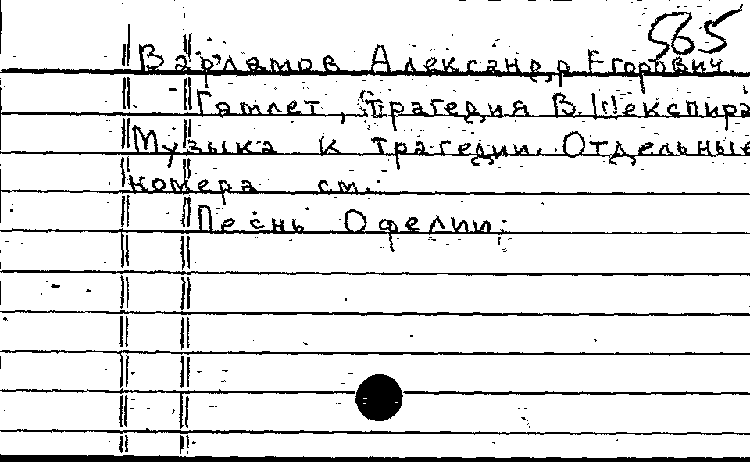 565
Варламов Александр Егорович
Гамлет, трагедия В. Шекспира
Музыка к трагедии. Отдельные
номера см.:
Песнь Офелии;